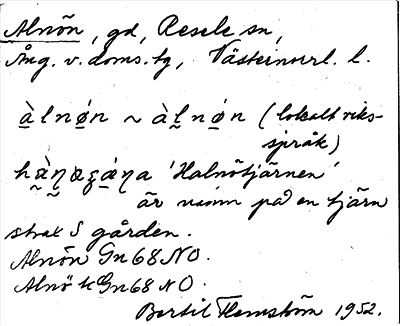 Alnön, gd, Resele sn,
Ång. v. doms. tg, Västernorrl. l.
àlnǿn ~ àl̬nǿn (lokalt riks-
språk)
'Halnötjärnen'
är namn på en tjärn
strax S gården.
Alnön Gn68 NO.
Alnö Gn68 NO.
Bertil Flemström 1952.